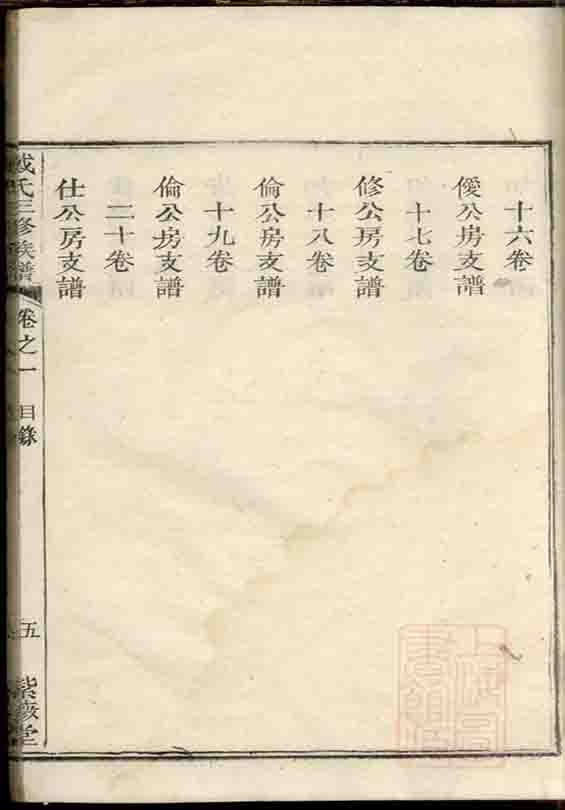 十六卷
僾公房支譜
十七卷
修公房支譜
十八卷
倫公房支譜
十九卷
倫公房支譜
二十卷
仕公房支譜
氏三修族譜
卷之一
目錄
五
紫薇堂